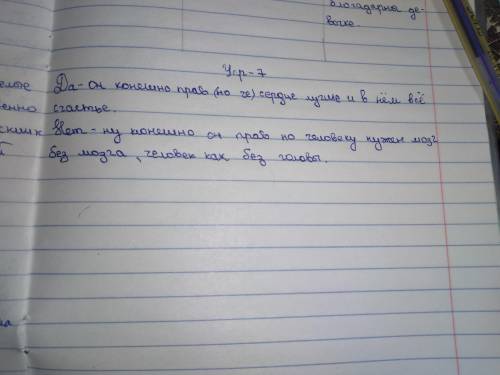 благодарны де-
вочке.
Уср-7
елое Да-он конешно право (но не) сердце лучше и в нём всё
енно счастье.
ский к Нет - ну конешно он право но человеку нужен мозг
без мозга, человек как без головы.